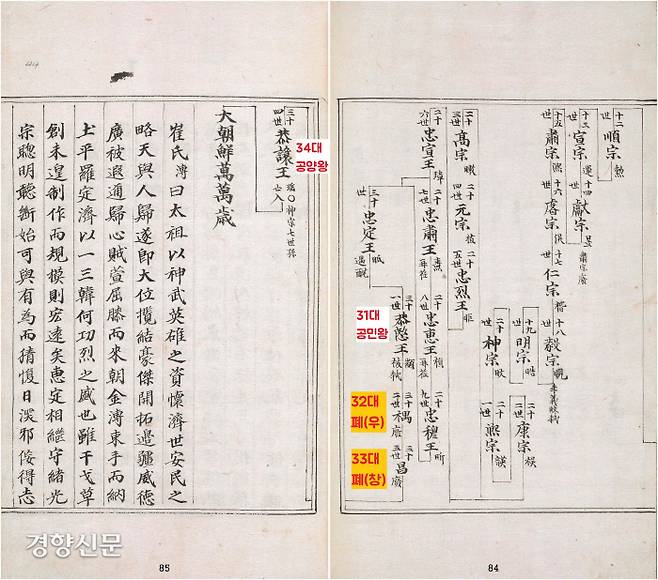 十二世 順宗 勳
十三世 宣宗 運 十四世 獻宗 昱 肅宗廢
十五世 肅宗 熙 十六世 睿宗 俁 十七世 仁宗 楷 十八世 毅宗 晛
十九世 明宗 晧 二十世 康宗 祦
二十世 神宗 晫 二十一世 熙宗 韺
二十三世 高宗 皞 二十四世 元宗 植 二十五世 忠烈王 昛
二十六世 忠宣王 璋 二十七世 忠肅王 燾 再莅 二十八世 忠惠王 禎 再莅 二十九世 忠穆王 昕
三十世 忠定王 㫝 遇酖
三十一世 恭愍王 顓 被弑 三十二世 禑 廢 三十三世 昌 廢
31대
공민왕
32대
폐(우)
33대
폐(창)
84
三十四世 恭讓王 瑤○神宗七世孫
34대
공양왕
大朝鮮萬萬歲
崔氏溥曰太祖以神武英雄之資懷濟世安民之
略天與人歸遂即大位攬結豪傑開拓邊疆威德
廣被遐邇歸心賊萱屈膝而來朝金溥束手而納
土平羅定濟以一三韓何功烈之盛也雖干戈草
創未遑制作而規模則宏遠矣惠定相繼守緖光
宗聰明聽斷始可與有為而猜愎日深邪佞得志
경향신문
85